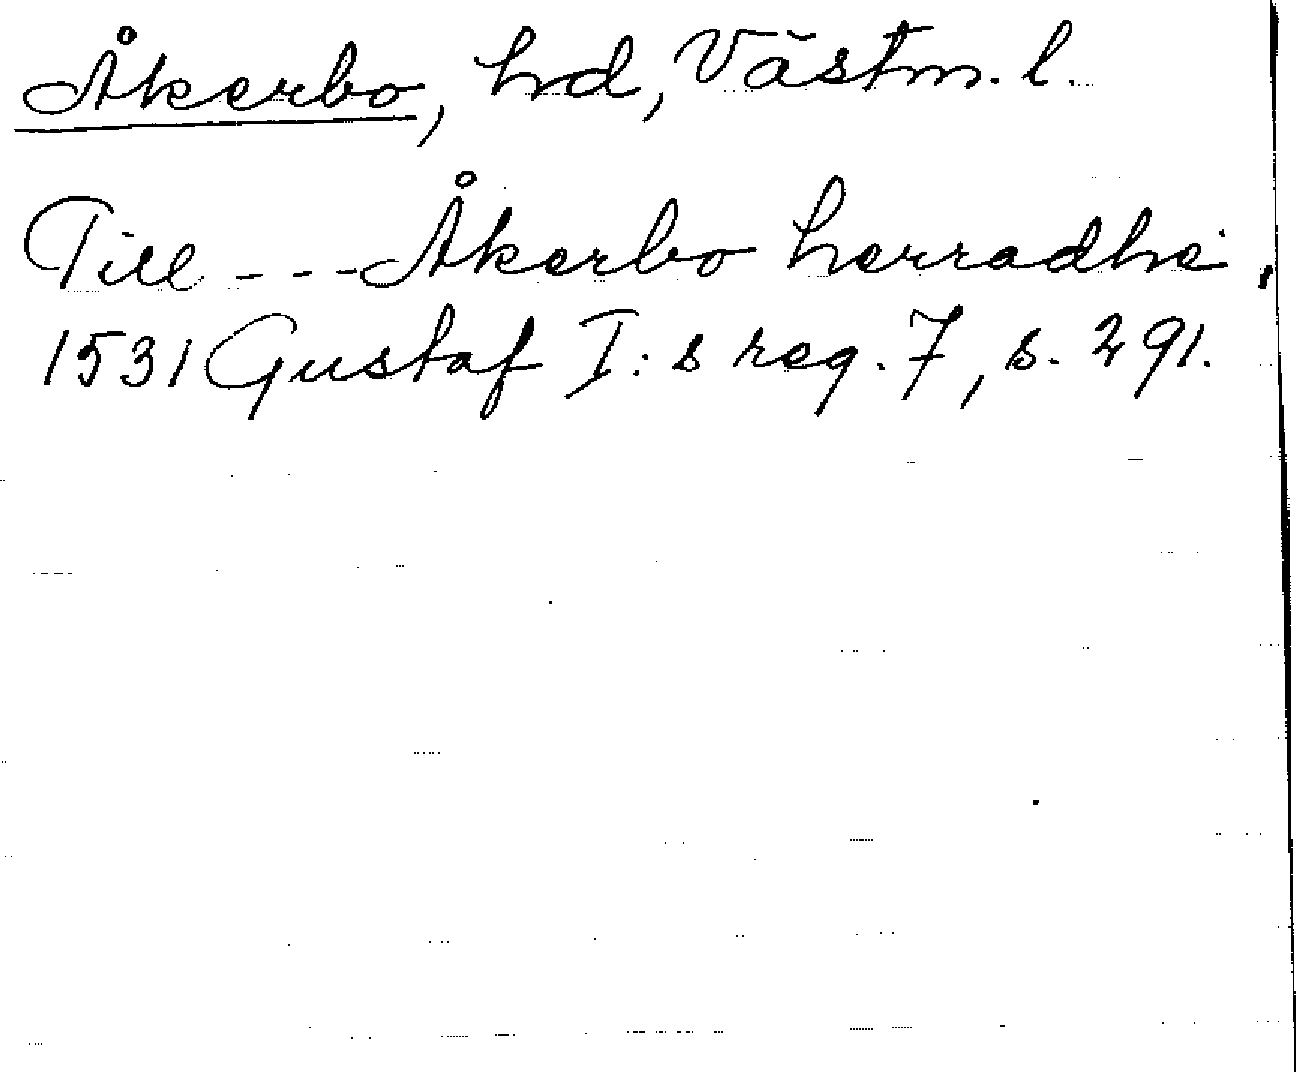 Åkerbo, hd, Västm. l.
Till - - - Åkerbo herradhe,
1531 Gustaf I:s reg. 7, s. 291.